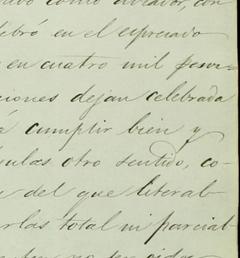 como avecador, con
libró en el espresado
en cuatro mil pese-
ciones dejan celebrada
á cumplir bien y
ulas otro sentido, co-
del que literal
arlas total ni parcial